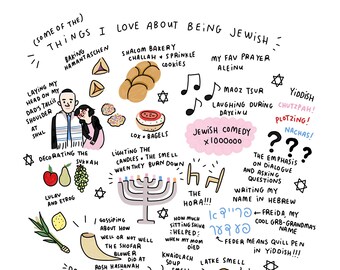 (SOME OF THE)
THINGS I LOVE ABOUT BEING JEWISH
BAKING
HAMANTASCHEN
SHALOM BAKERY
CHALLAH + SPRINKLE
COOKIES
MY FAV PRAYER
ALEINU
LAYING MY
HEAD ON MY
DAD'S TALLIS
SHOULDER
AT
SHUL
MAOZ TZUR
LAUGHING DURING
DAYEINU
YIDDISH
CHUTZPAH!
PLOTZING!
NACHAS!
LOX + BAGELS
JEWISH COMEDY
x1000000
???
DECORATING THE
SUKKAH
LIGHTING THE
CANDLES + THE SMELL
WHEN THEY BURN DOWN
THE EMPHASIS
ON DIALOGUE
AND ASKING
QUESTIONS
LULAV
AND ETROG
THE
HORA!!!
WRITING MY
NAME IN HEBREW
פריידא
פעדער
FREIDA MY
COOL GRB-GRANDMA'S
NAME
FEDER MEANS QUILL PEN
IN YIDDISH!!!
GOSSIPING
ABOUT HOW
WELL OR NOT WELL
THE SHOFAR
BLOWER
DID AT
ROSH HASHANAH
HOW MUCH
SITTING SHIVA
HELPED
WHEN MY
MOM DIED
KNAIDLACH
SOUP
LATKE SMELL